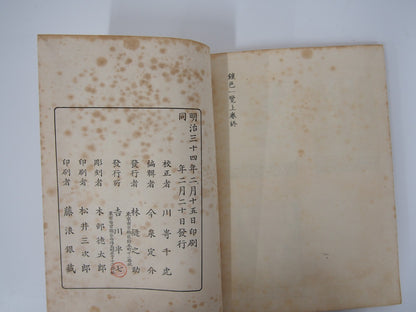 鍾色一覽上卷終
明治三十四年二月十五日印刷
同年二月二十日發行
校正者 川嵜千虎
編輯者 今泉定介
發行者 林縫之助
發行所 吉川半七
彫刻者 木邨德太郎
印刷者 松井三次郎
印刷者 藤浪銀藏